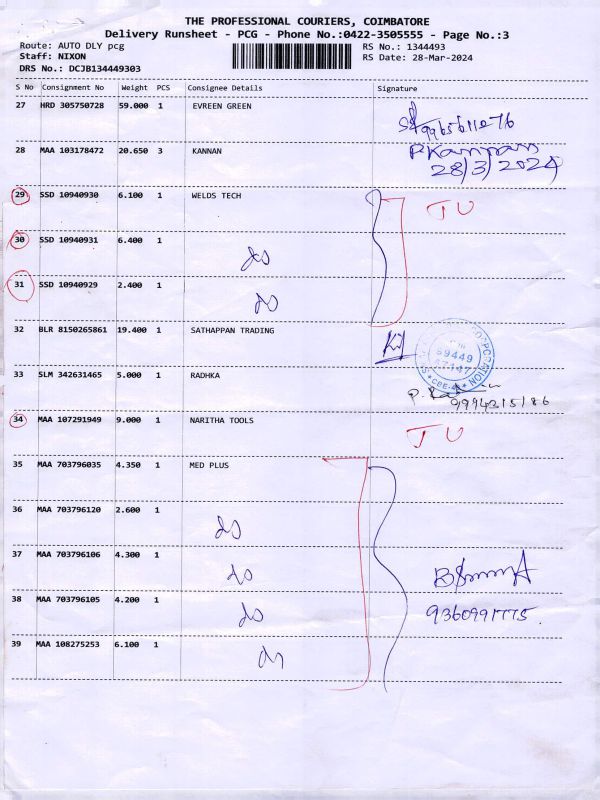 THE PROFESSIONAL COURIERS, COIMBATORE
Delivery Runsheet - PCG - Phone No.:0422-3505555 - Page No.:3
Route: AUTO DLY pcg RS No.: 1344493
Staff: NIXON RS Date: 28-Mar-2024
DRS No.: DCJB134449303
S No Consignment No Weight PCS Consignee Details Signature
27 HRD 305750728 59.000 1 EVREEN GREEN
28 MAA 103178472 20.650 3 KANNAN P Kannan
28/3/2024
29 SSD 10940930 6.100 1 WELDS TECH TU
30 SSD 10940931 6.400 1 do
31 SSD 10940929 2.400 1 do
32 BLR 8150265861 19.400 1 SATHAPPAN TRADING
33 SLM 342631465 5.000 1 RADHKA
34 MAA 107291949 9.000 1 NARITHA TOOLS TU
35 MAA 703796035 4.350 1 MED PLUS
36 MAA 703796120 2.600 1 do
37 MAA 703796106 4.300 1 do
38 MAA 703796105 4.200 1 do 9360991775
39 MAA 108275253 6.100 1